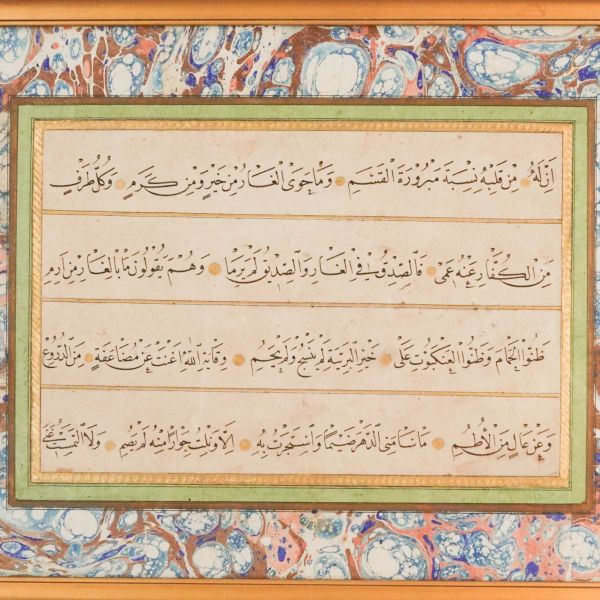 اَنَّ لَهُ مِنْ قَلْبِهِ نِسْبَةً مَبْرُورَةَ الْقَسَمِ وَمَا حَوَى الْغَارُ مِنْ خَيْرٍ وَمِنْ كَرَمٍ وَكُلُّ طَرْفٍ
مِنَ الْكُفَّارِ عَنْهُ عَمِى فَالصِّدْقُ فِى الْغَارِ وَالصِّدِّيقُ لَمْ يَرِمَا وَهُمْ يَقُولُونَ مَا بِالْغَارِ مِنْ اَرِمِ
ظَنُّوا الْحَمَامَ وَظَنُّوا الْعَنْكَبُوتَ عَلَى خَيْرِ الْبَرِيَّةِ لَمْ تَنْسُجْ وَلَمْ تَحُمِ وِقَايَةُ اللّٰهِ اَغْنَتْ عَنْ مُضَاعَفَةٍ مِنَ الدُّرُوعِ
وَعَنْ عَالٍ مِنَ الْاُطُمِ مَا سَامَنِى الدَّهْرُ ضَيْمًا وَاسْتَجَرْتُ بِهِ اِلَّا وَنِلْتُ جِوَارًا مِنْهُ لَمْ يُضَمِ وَلَا الْتَمَسْتُ غِنَى